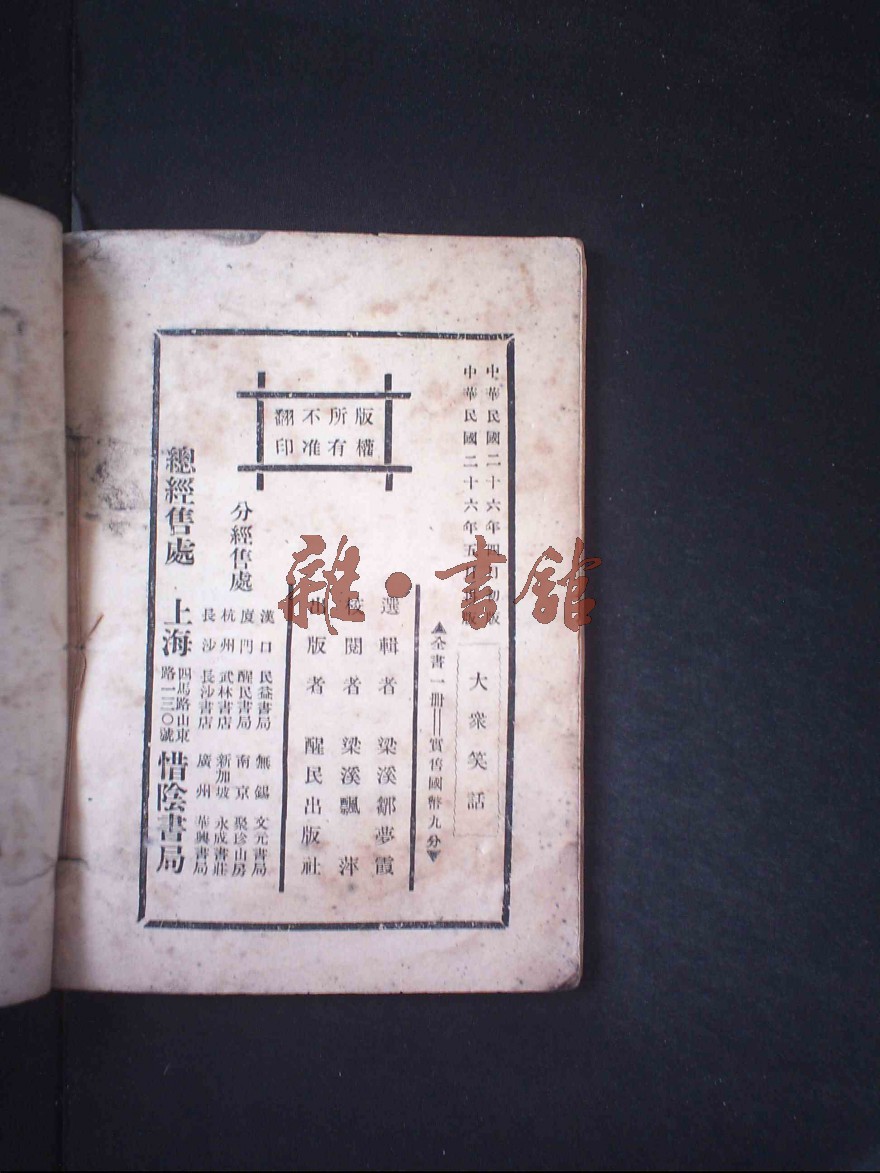 中華民國二十六年四月初版
中華民國二十六年五月再版
大衆笑話
▲全書一册——實售國幣九分▼
選輯者 梁溪鄒夢霞
校閱者 梁溪飄萍
出版者 醒民出版社
版權
所有
不准
翻印
分經售處
漢口 民益書局 無錫 文元書局
廈門 醒民書局 南京 聚珍山房
杭州 武林書店 新加坡 永成書莊
長沙 長沙書店 廣州 華興書局
總經售處 上海 四馬路山東路一三〇號 惜陰書局
雜·書館